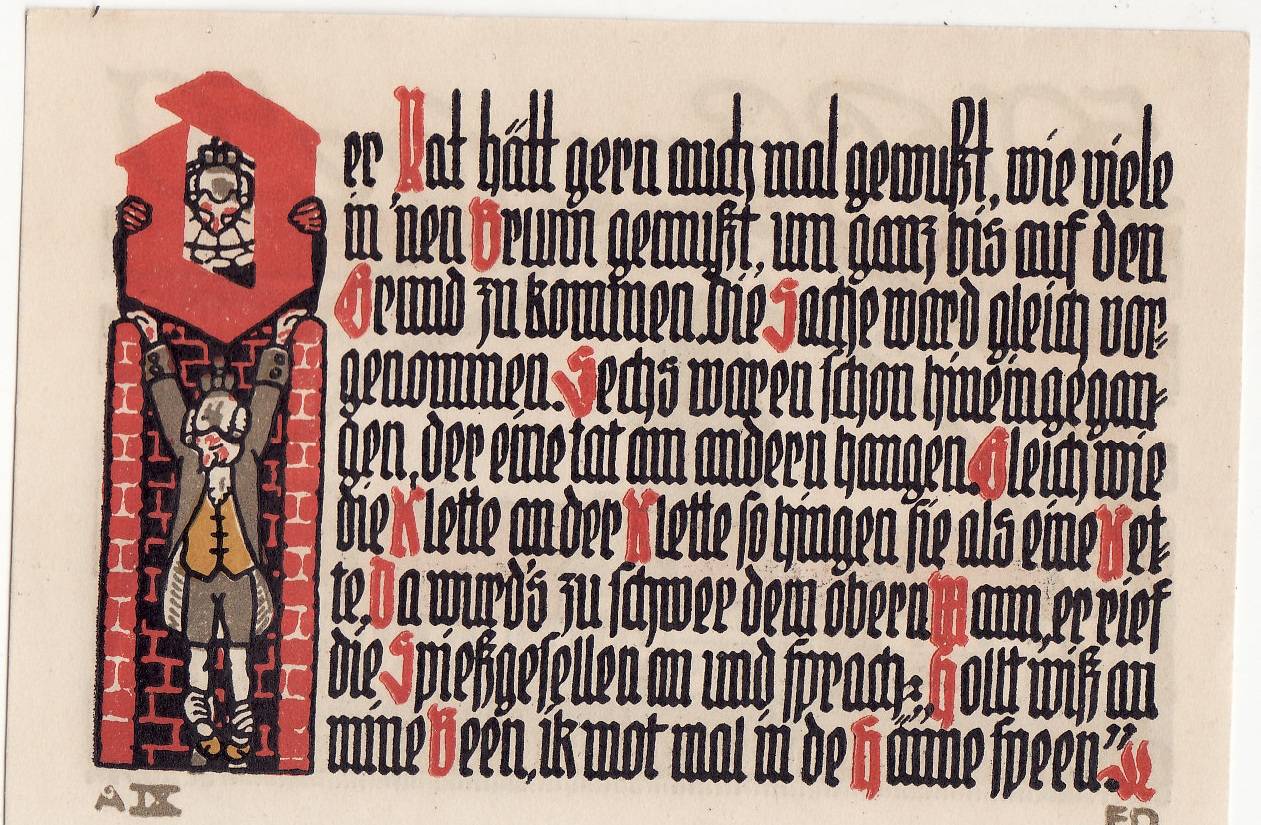 Der Rat hätt gern auch mal gewußt, wie viele
in 'nen Brunn gemußt, um ganz bis auf den
Grund zu kommen. Die Sache ward gleich vor-
genommen. Sechs waren schon hineingegan-
gen, der eine tat am andern hangen. Gleich wie
die Klette an der Klette so hingen sie als eine Ket-
te. Da wurd's zu schwer dem obern Mann, er rief
die Spießgesellen an und sprach: „Hollt wiß an
mine Been, ik mot mal in de Hänne speen."
A IX
FD